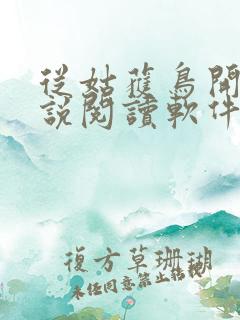 從姑獲鳥開
說閱讀軟件
復方草珊瑚
未經同意禁止轉載